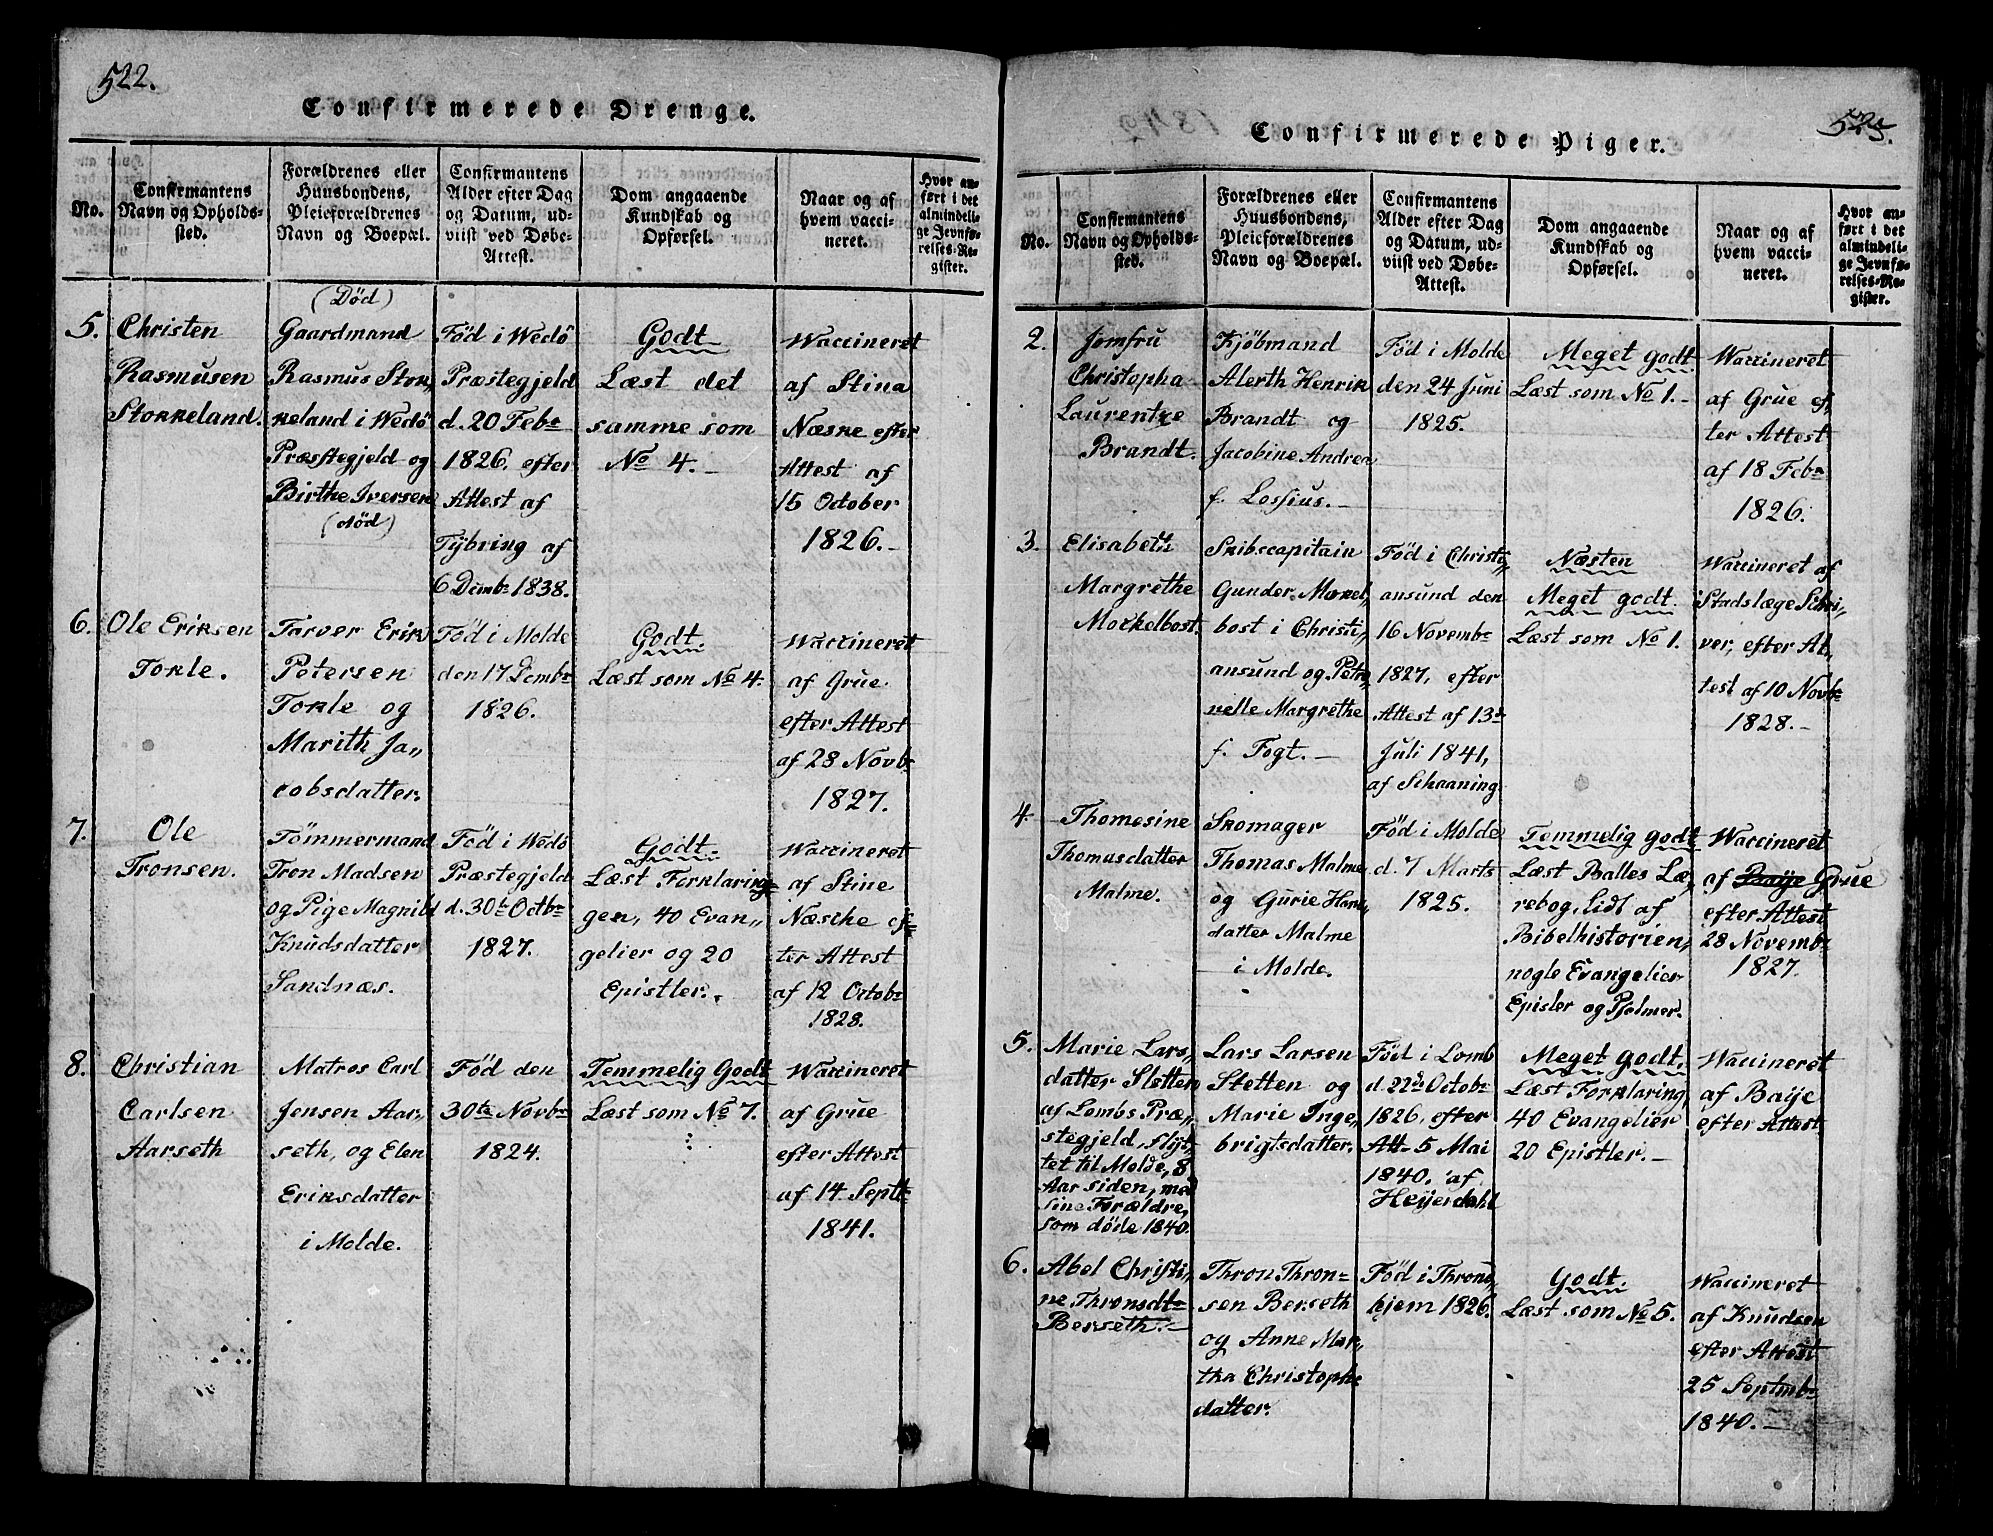 522.
Confirmerede Drenge.
No.
Confirmantens
Navn og Opholds-
sted.
Forældrenes eller
Huusbondens,
Pleieforældrenes
Navn og Boepæl.
Confirmantens
Alder efter Dag
og Datum, ud-
viist ved Døbe-
Attest.
Dom angaaende
Kundskab og
Opførsel.
Naar og af
hvem vacci-
neret.
Hvor an-
ført i det
almindeli-
ge Jevnfø-
relses-Re-
gister.
5.
Christen
Rasmusen
Stokkeland.
(Død)
Gaardmand
Rasmus Stok,
keland i Wedö
Præstegjeld og
Birthe Iversen
(död)
Föd i Wedö
Præstegjeld
d. 20 Febr
1826, efter
Attest af
Tÿbring af
6 Decmbr 1838.
Godt
Læst det
samme som
No 4.-
Waccineret
af Stina
Næske efter
Attest af
15 October
1826.-
6.
Ole Eriksen
Tokle.
Farver Erik
Petersen
Tokle og
Marith Ja„
cobsdatter.
Föd i Molde
den 17 Decmbr
1826.
Godt.
Læst som No 4.
Waccineret
af Grue
efter Attest
af 28 Novbr
1827.
7.
Ole
Tronsen.
Tömmermand
Tron Madsen
og Pige Magnild
Knudsdatter
Sandnæs.
Föd i Wedö
Præstegjeld
d. 30te Octbr
1827.
Godt.
Læst Forklaring,
gen, 40 Evan„
gelier og 20
Epistler.
Waccineret
af Stine
Næsche ef=
ter Attest
af 12 Octobr
1828.
8.
Christian
Carlsen
Aarseth
Matros Carl
Jensen Aar,
seth, og Elen
Eriksdatter
i Molde.
Föd den
30te Novbr
1824.
Temmelig Godt
Læst som No 7.
Waccineret
af Grue
efter Attest
af 14 Septbr
1841.
523.
Confirmerede Piger.
No.
Confirmantens
Navn og Opholds-
sted.
Forældrenes eller
Huusbondens,
Pleieforældrenes
Navn og Boepæl.
Confirmantens
Alder efter Dag
og Datum, ud-
viist ved Døbe-
Attest.
Dom angaaende
Kundskab og
Opførsel.
Naar og af
hvem vacci-
neret.
Hvor an-
ført i det
almindeli-
ge Jevnfø-
relses-Re-
gister.
2.
Jomfru
Christopha
Laurentze
Brandt.
Kjöbmand
Alerth Henrik
Brandt og
Jacobine Andrea
f. Lossius.-
Föd i Molde
den 24 Juni
1825.
Meget godt
Læst som No 1.-
Waccineret
af Grue ef,
ter Attest
af 18 Febr
1826.
3.
Elisabeth
Margrethe
Mockelbost.
Skibscapitain
Gunder Mokel,
bost i Christi,
ansund og Petro,
nelle Margrethe
f. Fogt.-
Föd i Christi„
ansund den
16 Novembr
1827, efter
Attest af 13de
Juli 1841,
af Schaaning
Næsten
Meget godt.
Læst som No 1.
Waccineret af
Stadslæge Schri,
ver, efter At,
test af 10 Novbr
1828.-
4.
Thomesine
Thomasdatter
Malme.
Skomager
Thomas Malme
og Gurie Hans,
datter Malme
i Molde.
Föd i Molde
d. 7 Marts
1825.
Temmelig godt
Læst Balles Læ,
rebog, lidt af
Bibelhistorien,
nogle Evangelier
Episler og Psalmer.
Waccineret
af Baÿe Grue
efter Attest
28 Novembr
1827.
5.
Marie Lars„
datter Sletten
af Lombs Præ,
stegjeld, flÿt,
tet til Molde, 8
Aar siden, med
sine Forældre,
som döde 1840.
Lars Larsen
Sletten og
Marie Inge,
brigtsdatter.
Föd i Lomb
d. 22de Octobr
1826, efter
Att. 5 Mai
1840, af
Heÿerdahl
Meget godt.
Læst Forklaring,
40 Evangelier
20 Epistler.-
Waccineret
af Baÿe
efter Attest
6.
Abel Christi,
ne Thronsdtr
Berseth.-
Thron Thron=
sen Berseth
og Anne Mar,
tha Christophe
datter.
Föd i Thrond,
hjem 1826.
Godt.
Læst som No 5.
Waccineret
af Knudsen
efter Attest
25 Septmbr
1840.-